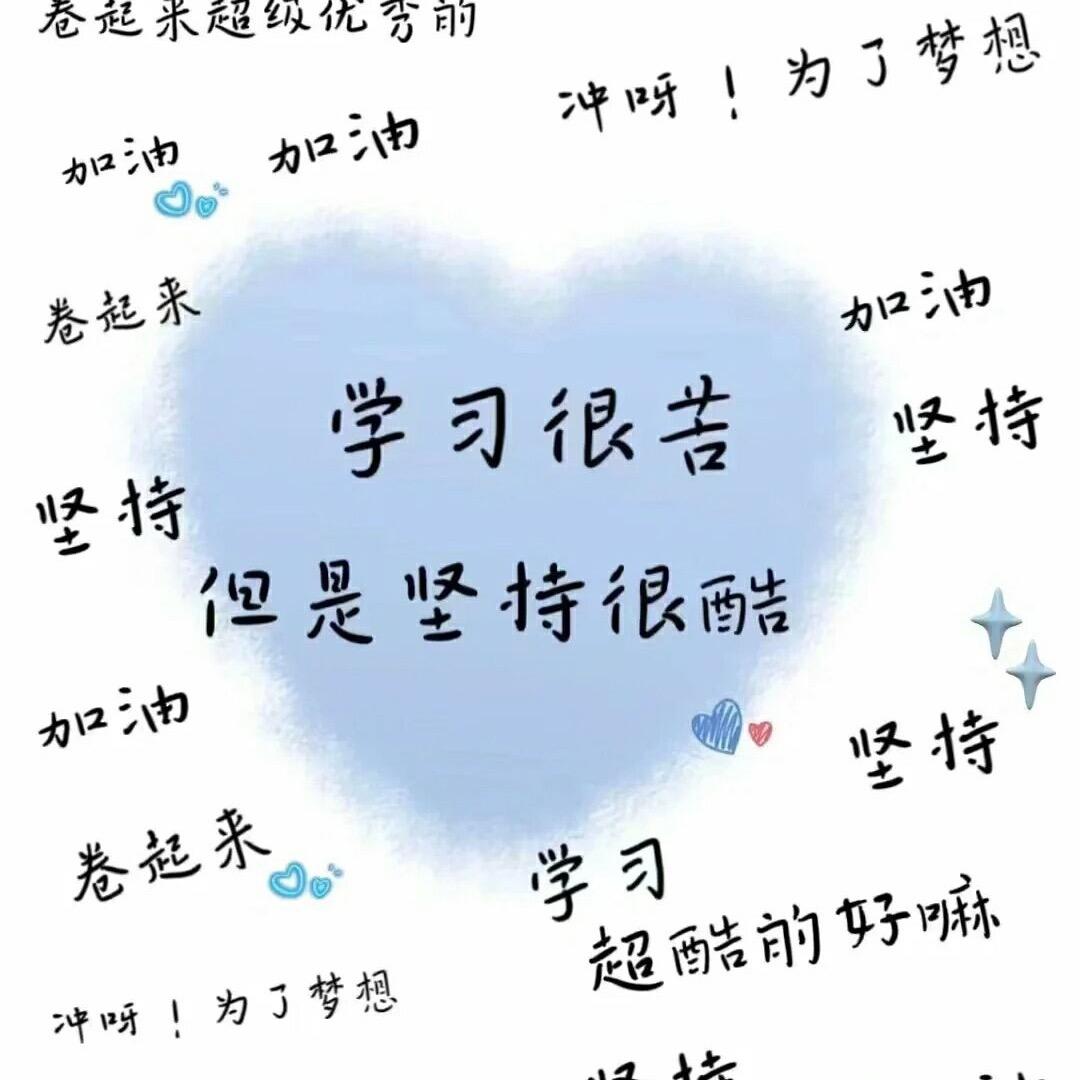 卷起来超级优秀的
冲呀！为了梦想
加油
加油
卷起来
加油
学习很苦
坚持
坚持
但是坚持很酷
加油
坚持
卷起来
学习
超酷的好嘛
冲呀！为了梦想
坚持